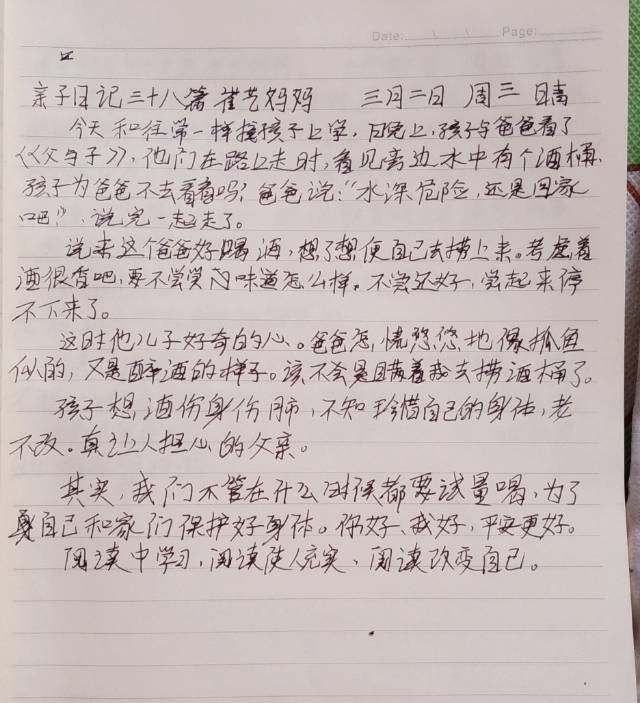 Date: Page:
亲子日记三十八篇 崔艺妈妈 三月二日 周三 晴
今天和往常一样接孩子上学,月晚上,孩子与爸爸看了
《父与子》,他们在路上走时,看见旁边水中有个酒桶.
孩子为爸爸不去看看吗?爸爸说:“水深危险,还是回家
吧”,说完一起走了。
说来这个爸爸好喝酒,想了想便自己去捞上来。考虑着
酒很香吧,要不尝尝闪味道怎么样。不尝还好,尝起来停
不下来了。
这时他儿子好奇的心。爸爸怎,慌悠悠地像抓鱼
似的,又是醉酒的样子。该不会是瞒着我去捞酒桶了。
孩子想酒伤身伤肺,不知珍惜自己的身体,老
不改。真让人担心的父亲。
其实,我们不管在什么时候都要试量喝,为了
自己和家们保护好身体。你好、我好,平安更好。
阅读中学习,阅读使人充实、阅读改变自己。